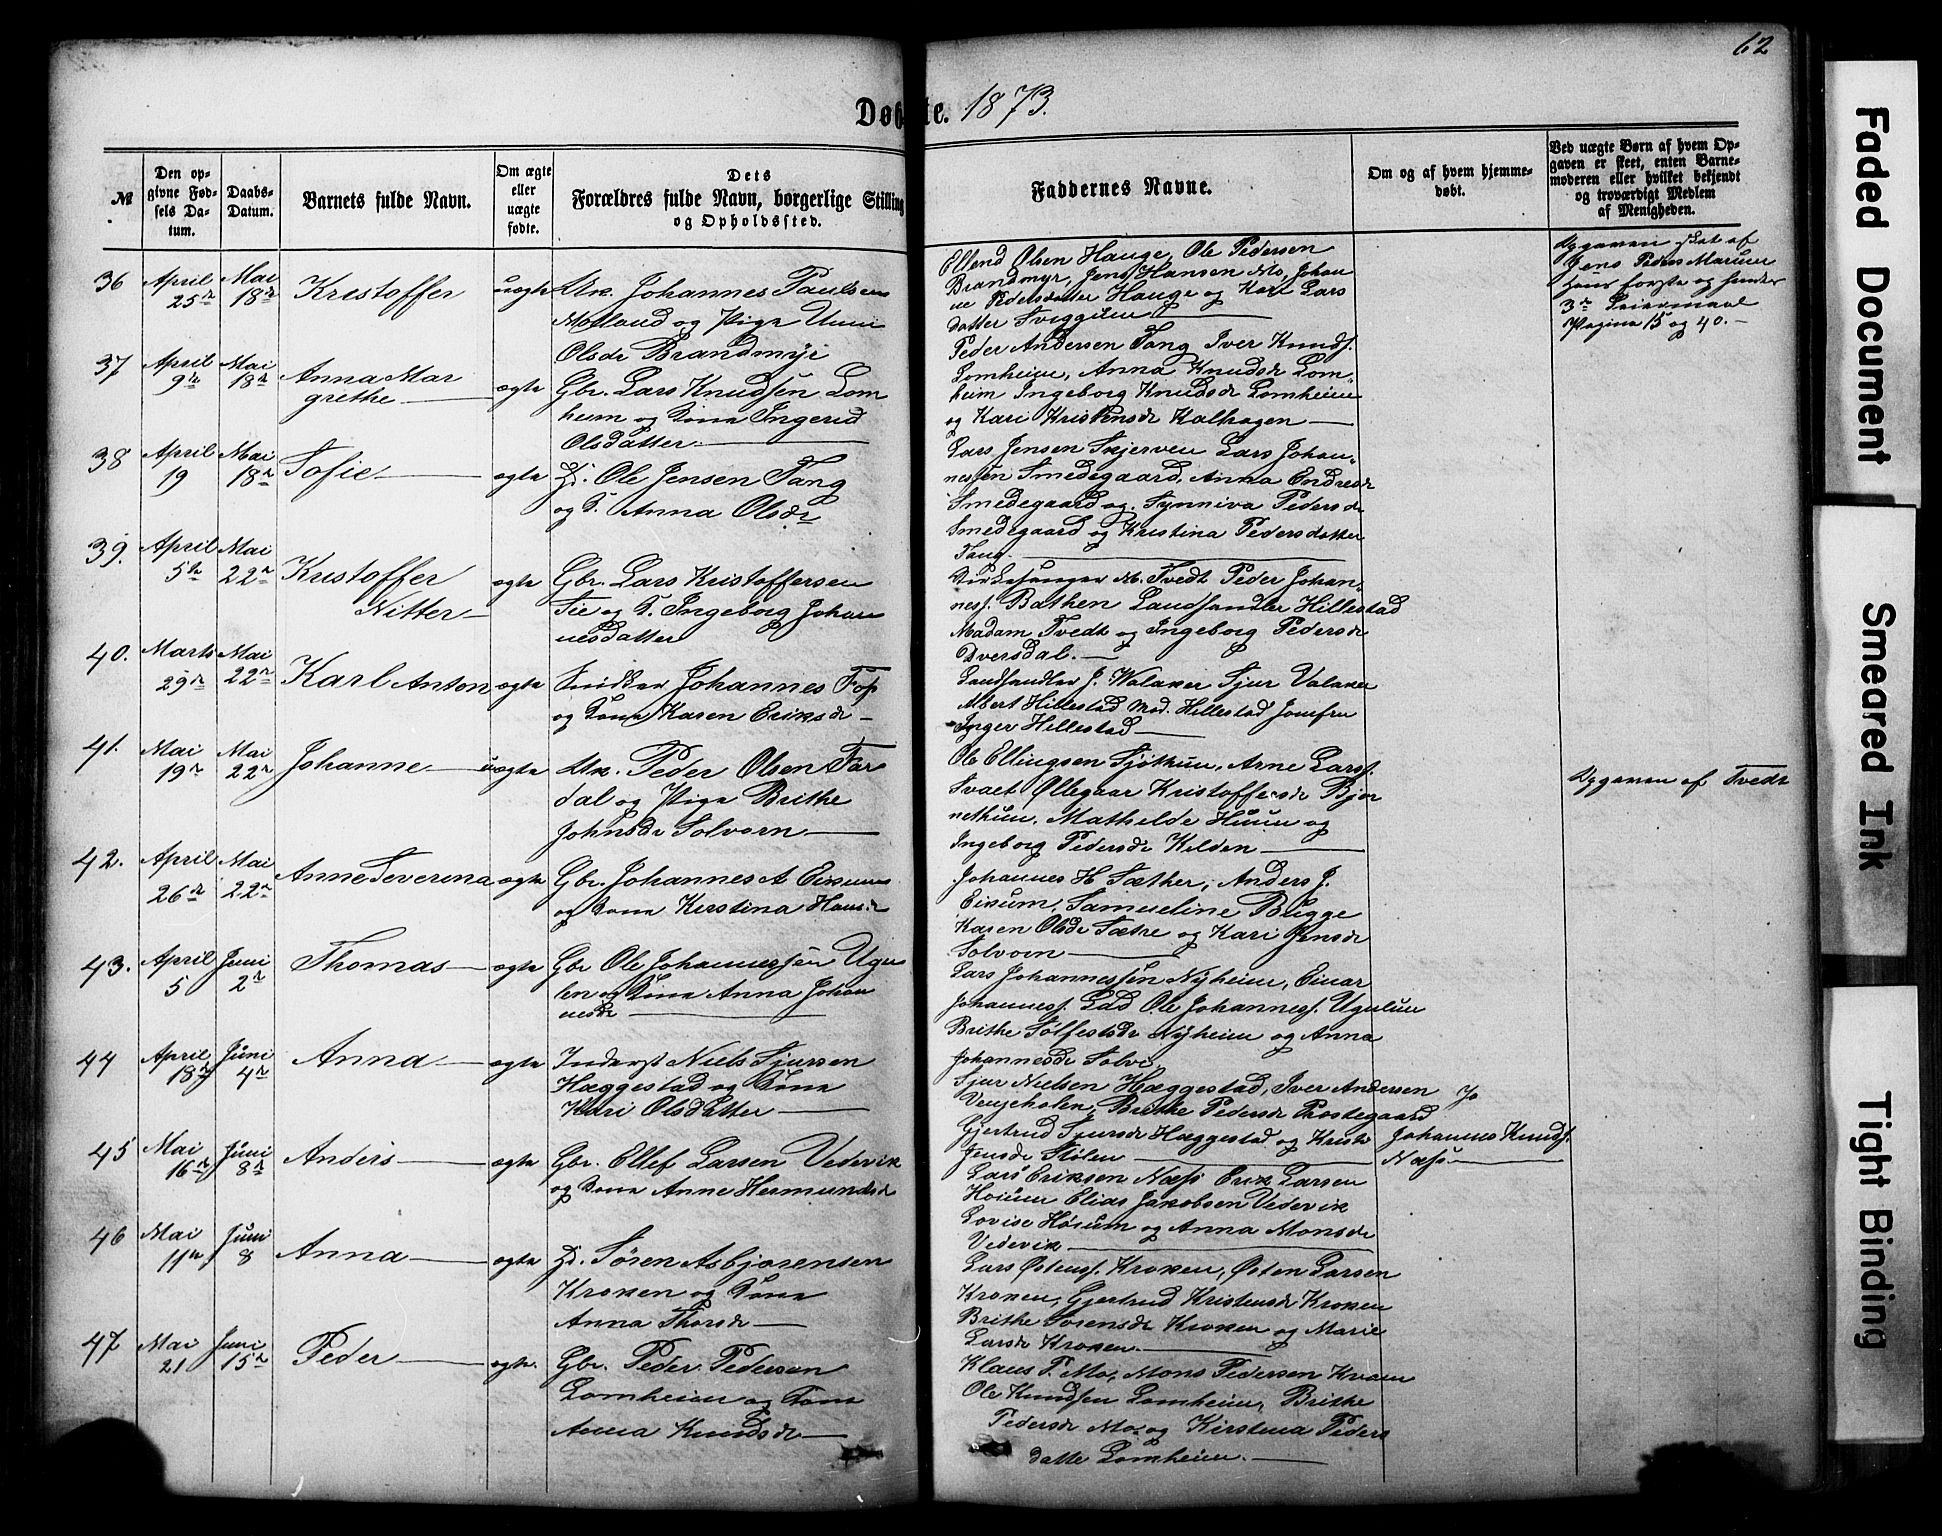 62
Døbte. 1873.
№
Den opgivne Fødsels Datum.
Daabs-Datum.
Barnets fulde Navn.
Om ægte eller uægte fødte.
Dets Forældres fulde Navn, borgerlige Stilling og Opholdssted.
Faddernes Navne.
Om og af hvem hjemmedøbt.
Ved uægte Børn af hvem Opgaven er skeet, enten Barnemoderen eller hvilket bekjendt og troværdigt Medlem af Menigheden.
36 April 25de Mai 18de Kristoffer uægte Uk. Johannes Paulsen
Molland og Pige Unni
Olsdr Brandmyr
Ellend Olsen Hauge, Ole Pedersen
Brandmyr, Jens Hansen Mo, Johan
ne Pedersdatter Hauge og Kari Lars
datter Sviggum
Opgaven af
Jens Peders Marum
3die Leiermaal
Pagina 15 og 40.
37 April 9de Mai 18de Anna Mar
grethe ægte Gbr. Lars Knudsen Lom
heim og Kone Ingerid
Olsdatter
Peder Andersen Tang Iver Knuds.
Lomheim, Anna Knudsdr Lom
heim Ingeborg Knudsdr Lomheim
og Kari Kristensdr Kalhagen
38 April 19 Mai 18de Sofie ægte Ole Jensen Tang
og K. Anna Olsdr
Lars Jensen Skjerven Lars Johan
nessen Smedegaard, Anna Endresdr
Smedegaard og Synniva Pedersdr
Smedegaard og Kristina Pedersdatter
Tang.
39. April 5te Mai 22de Kristoffer
Nitter ægte Gbr. Lars Kristoffersen
og K. Ingeborg Johan
nesdatter
Kirkesanger M. Tvedt Peder Johan
ness. Bathen Landhandler Hillestad
Madam Tvedt og Ingeborg Pedersdr
Dversdal.
40. Marts 29de Mai 22de Karl Anton ægte Snidker Johannes
og Kone Karen Eriksdr
Landhandler J. Walaker Sjur Valaker
Albert Hillestad Mad. Hillestad Jomfru
Inger Hillestad
41. Mai 19de Mai 22de Johanne uægte Uk. Peder Olsen Far
dal og Pige Brithe
Johnsdr Solvorn
Ole Ellingsen Sjøthun, Arne Larss.
Svaet Øllegaar Kristoffersdr Bjør
nethun, Mathilde Huun og
Ingeborg Pedersdr Kilden
Opgaven af Tvedt
42. April 26de Mai 22de Anne Severena ægte Gbr. Johannes A Eikum
og Kone Kirstina Hansdr
Johannes H Sæther, Anders J.
Eikum, Samueline Bugge
Karen Olsdr Sætre og Kari Jensdr
Solvorn
43. April 5 Juni 2de Thomas ægte Gbr Ole Johannessen Ugu
len og Kone Anna Johan
nesdr
Lars Johannessen Nyheim, Einar
Johanness. Lad Ole Johanness. Ugulun
Brithe Solfestsdr Nyheim og Anna
Johannesdr Solvi
44 April 18de Juni 4de Anna ægte Inderst Niels Sjursen
Hæggestad og Kone
Kari Olsdatter
Sjur Nielsen Hæggestad, Iver Andersen
Venjeholen, Brithe Pedersdr Prestegaard
Gjertrud Sjursdr Hæggestad og Kristi
Jensdr Stølen
Jo
Johannes Knuds.
Næss
45 Mai 16de Juni 8de Anders ægte Gbr. Ellef Larsen Vedvik
og Kone Anne Hermundsdr
Lars Eriksen Næss Erik Larsen
Høium Elias Jakobsen Vedvik
Lovise Høium og Anna Monsdr
Vedvik
46 Mai 11te Juni 8 Anna ægte Søren Asbjørensen
Kroken og Kone
Anna Thorsdr
Lars Østens. Kroken, Østen Larsen
Kroken, Gjertrud Kristensdr Kroken
Brithe Sørensdr Kroken og Marie
Larsdr Kroken.
47 Mai 21 Juni 15de Peder ægte Gbr. Peder Pedersen
Lomheim og Kone
Anna Knudsdr
Klaus P. Mo, Mons Pedersen Kvam
Ole Knudsen Lomheim, Brithe
Pedersdr Mo og Kirstina Peders
datte Lomheim.
Faded Document
Smeared Ink
Tight Binding